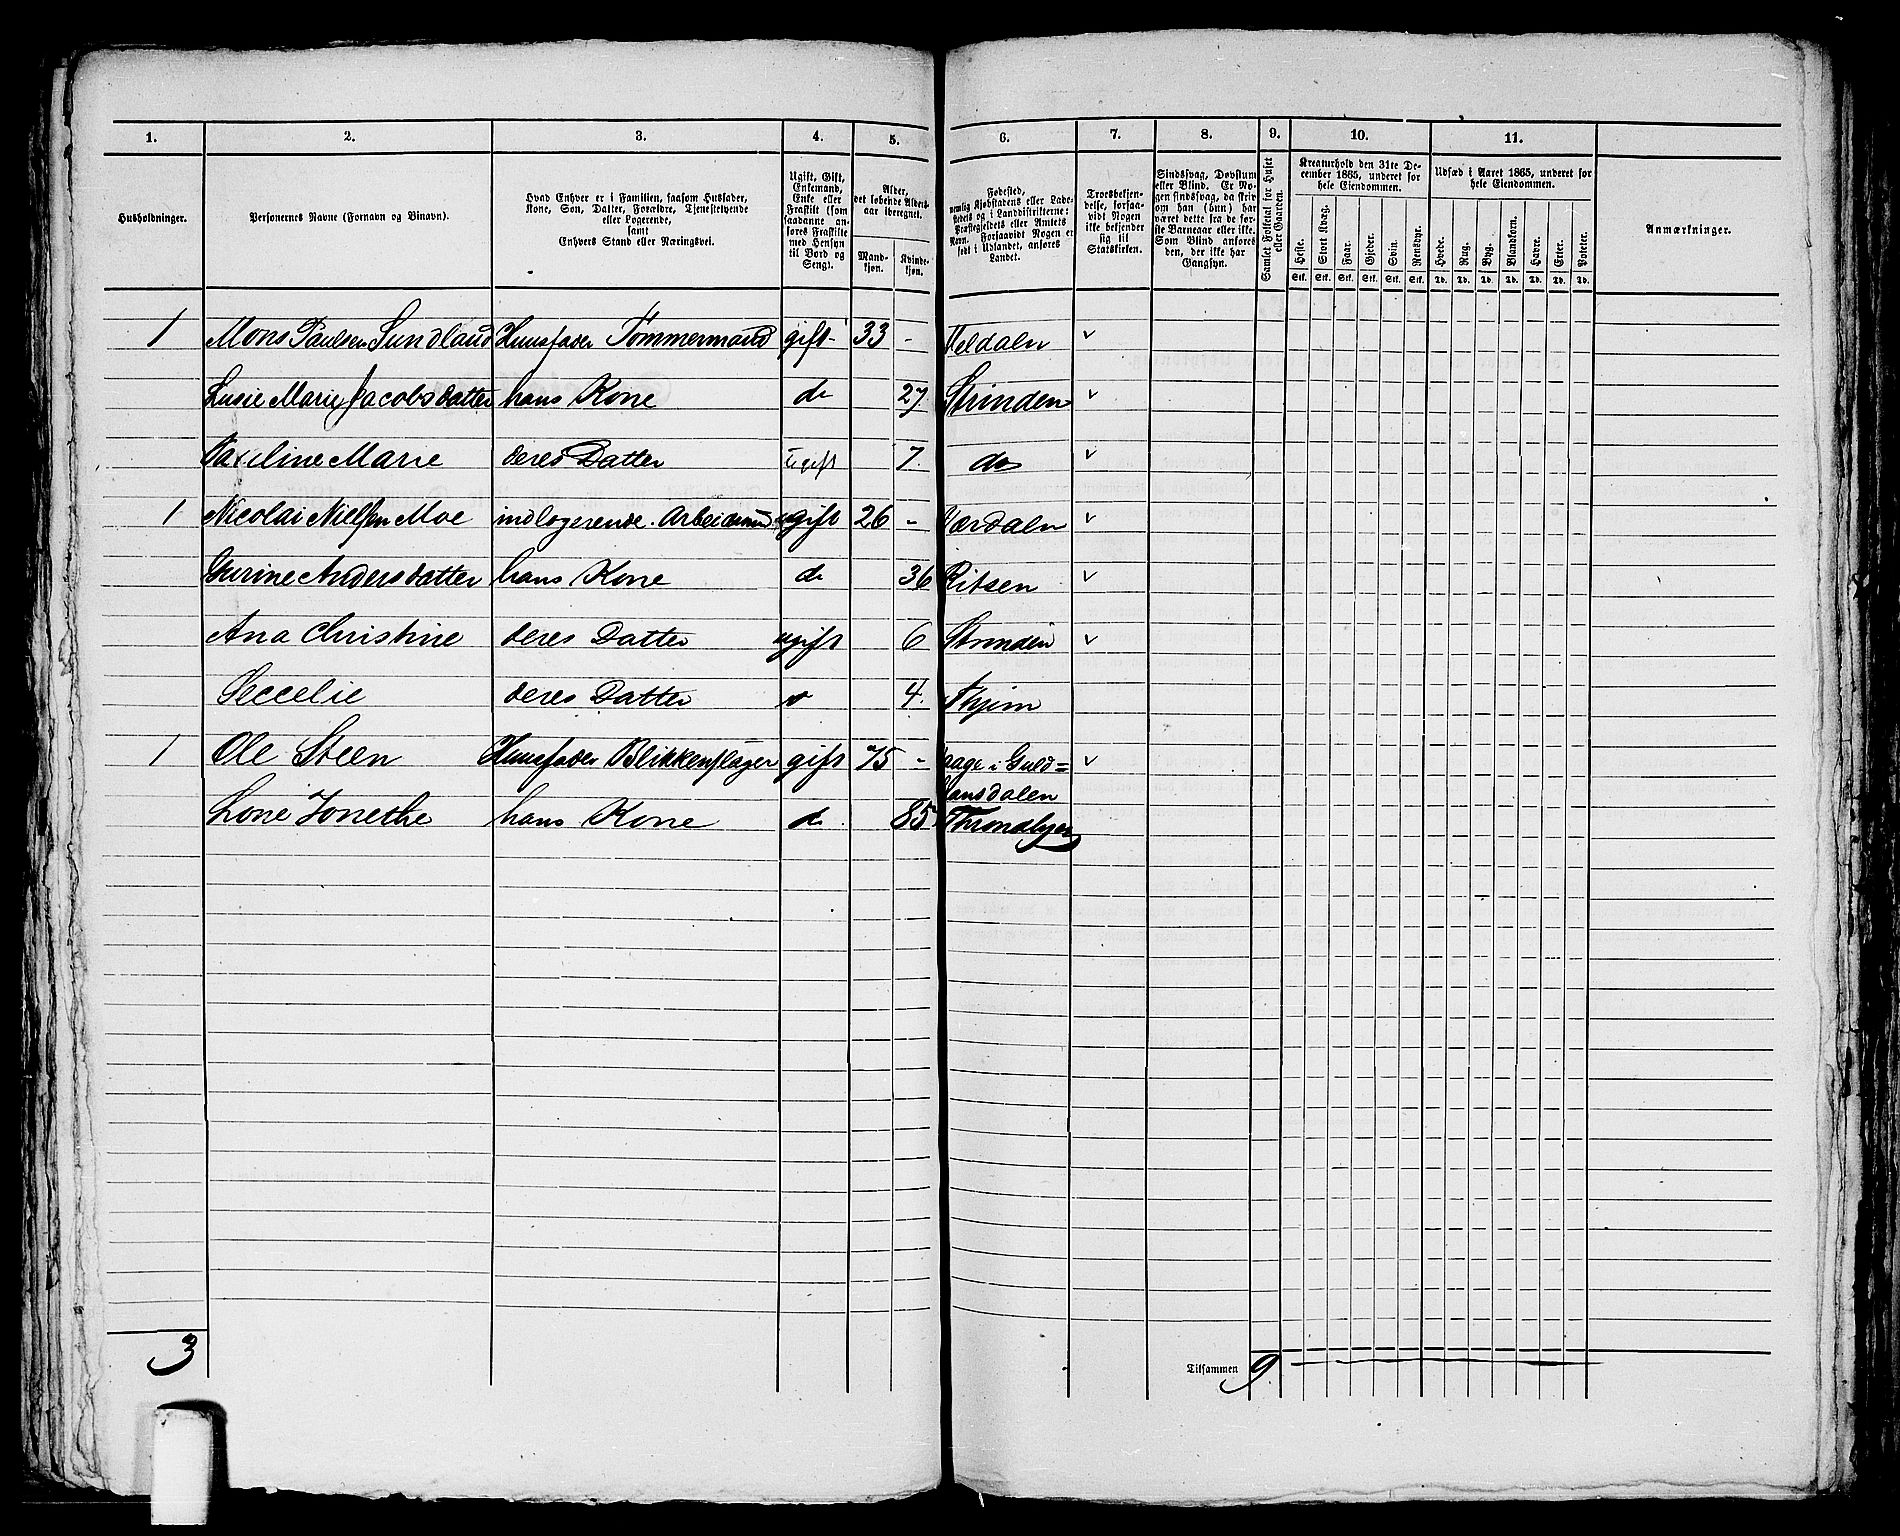 1. 2. 3. 4. 5. 6. 7. 8. 9. 10. 11.
Husholdninger.
Personernes Navne (Fornavn og Tilnavn).
Hvad Enhver er i Familien, saasom Husfader,
Kone, Søn, Datter, Forældre, Tjenestetyende
eller Logerende,
samt
Enhvers Stand eller Næringsvei.
Ugift, Gift,
Enkemand,
Enke eller
Fraskilt (som
saadanne an-
føres Fraskilte
med Hensyn
til Bord og
Seng).
Alder,
det løbende Alders-
aar iberegnet.
Mand-
kjøn.
Kvinde-
kjøn.
Fødested,
nemlig Kjøbstadens eller Lade-
stedets og i Landdistrikterne:
Præstegjeldets eller Amtets
Navn. Forsaavidt Nogen er
født i Udlandet, anføres
Landet.
Troesbekjen-
delse, forsaa-
vidt Nogen
ikke bekjender
sig til
Statskirken.
Sindssvag, Døvstum
eller Blind. Er No-
gen sindssvag, da skriv
om han (hun) har
været dette fra de før-
ste Barneaar eller ikke.
Som Blind anføres
den, der ikke har
Gangsyn.
Samlet Folketal for Huset
eller Gaarden.
Kreaturhold den 31te De-
cember 1865, underet for
hele Eiendommen.
Heste. Stort Kvæg. Faar. Gjeder. Svin. Rensdyr.
Stk. Stk. Stk. Stk. Stk. Stk.
Udsæd i Aaret 1865, underet for
hele Eiendommen.
Hvede. Rug. Byg. Blandkorn. Havre. Erter. Poteter.
Td. Td. Td. Td. Td. Td. Td.
Anmærkninger.
1 Mons Paulsen Sundland Huusfader Tømmermand gift 33 - Meldalen v
Lusie Marie Jacobsdatter hans Kone do 27 Strinden v
Marie deres Datter ugift 7 do v
1 Nicolai Nielsen Moe indlogerende Arbeidsmand gift 26 - Værdalen v
Gurine Andersdatter hans Kone do 36 Ritsen v
Ana Christine deres Datter ugift 6 Strinden v
Seccelie deres Datter 4
1 Ole Steen Huusfader Blikkenslager gift 75 - Vaage i Guld= v
bransdalen
Lone Jonethe hans Kone do 85 Throndhjem
3
Tilsammen 9.